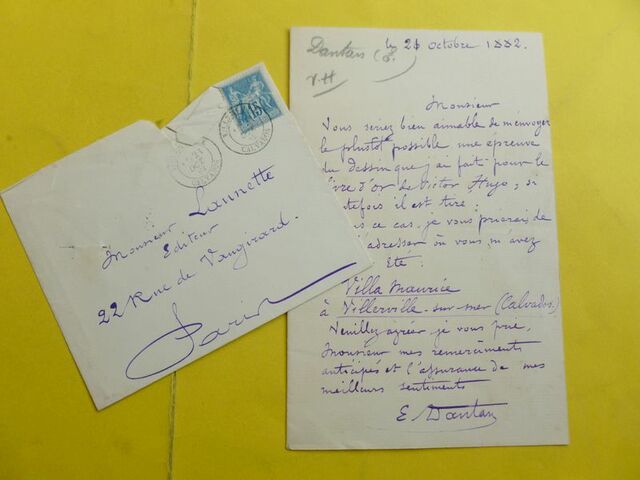 Dantan (E.)
V.H
le 21 octobre 1882.
Monsieur
Vous seriez bien aimable de m'envoyer
le plustôt possible une épreuve
du dessin que j'ai fait pour le
livre d'or de Victor Hugo, si
toutefois il est tiré.
ce cas, je vous prierais de
l'adresser où vous m'avez
Eté:
Villa Maurice
à Villerville-sur-mer (Calvados.)
Veuillez agréer je vous prie,
Monsieur mes remerciments
anticipés et l'assurance de mes
meilleurs sentiments
E. Dantan
15
CALVADOS
Monsieur Launette
Editeur
22 Rue de Vaugirard.
Paris